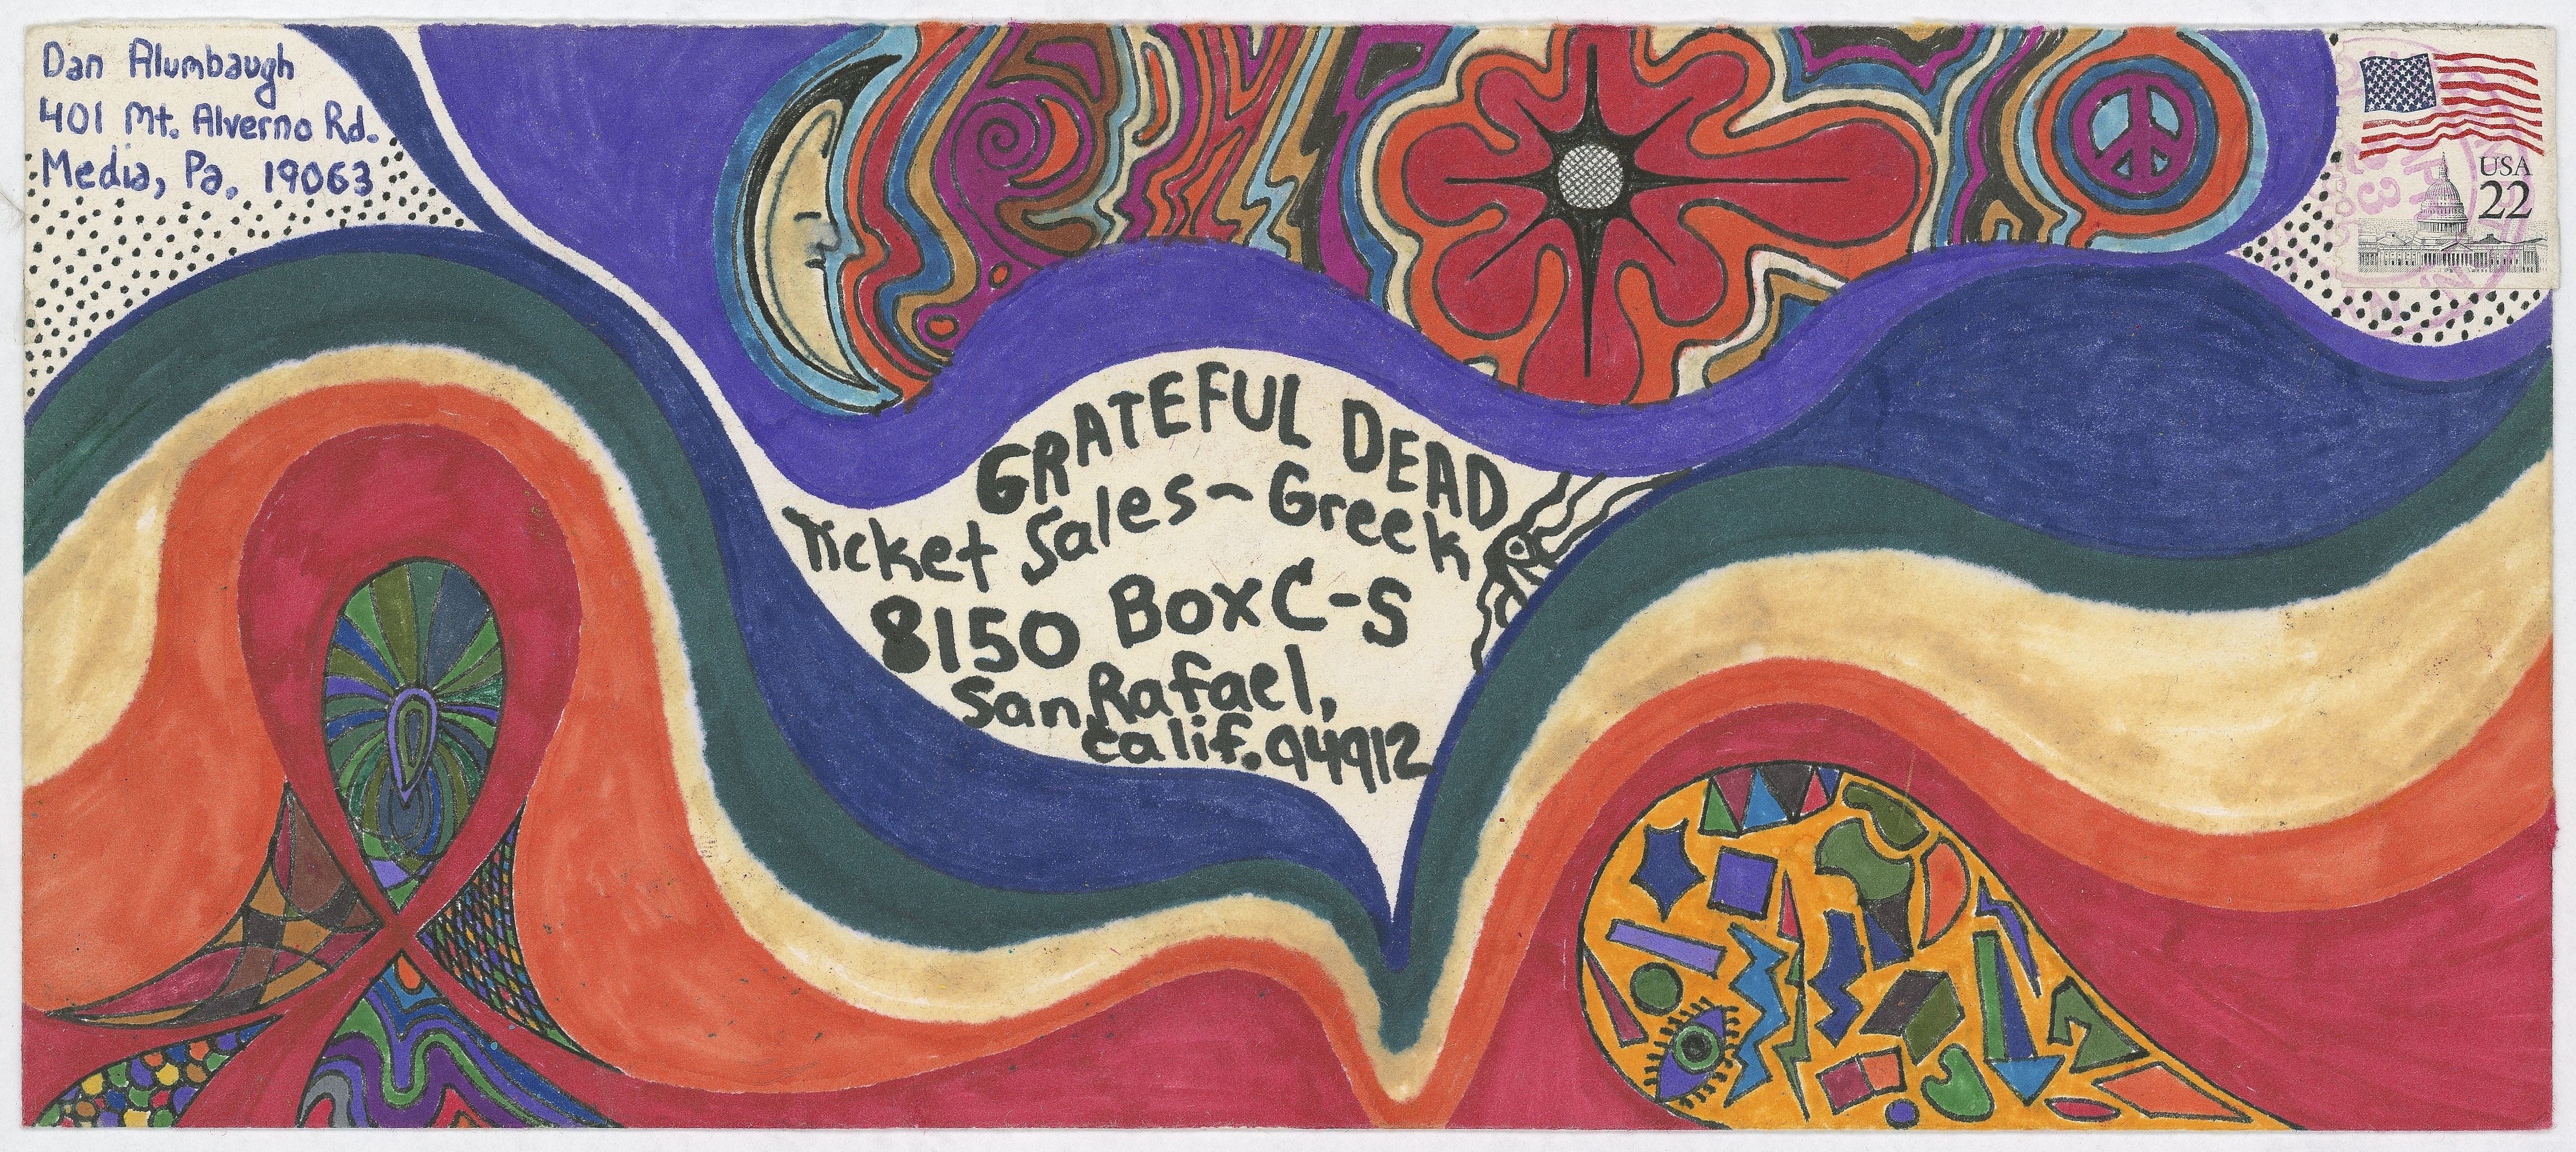 Dan Alumbaugh
401 Mt. Alverno Rd.
Media, Pa. 19063
USA
22
GRATEFUL DEAD
Ticket Sales~Greek
8150 Box C-S
San Rafael,
Calif. 94912